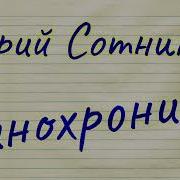 рий Сотник
нохрони